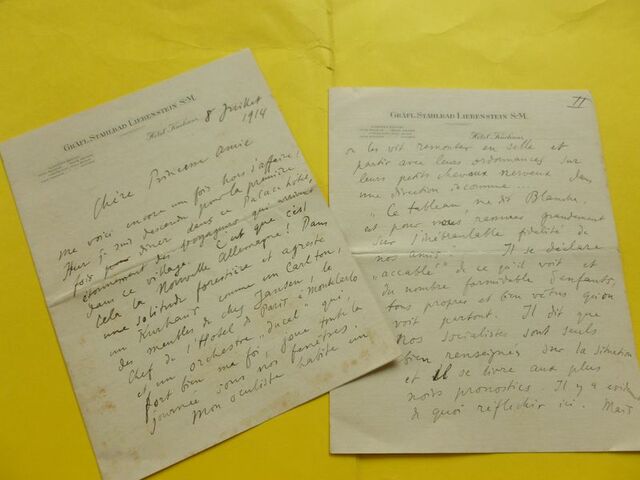 GRÄFL. STAHLBAD LIEBENSTEIN S-M.
Hôtel Kurhaus
8 Juillet
1914
Chère Princesse Amie
me voici encore un fois hors d'affaire!
Hier je suis descendu pour la première
fois pour dîner dans ce Palace hôtel,
étonnement des voyageurs qui arrivent
dans ce village. C'est que c'est
cela la Nouvelle Allemagne! Dans
une solitude forestière et agreste
un Kurhaus comme un Carlton,
des meubles de chez Jansen, le
Chef de l'Hotel de Paris à Monte Carlo
et un orchestre "ducal" qui,
fort bien ma foi, joue toute la
journée sous nos fenêtres.
Mon oculiste habite un
II
GRÄFL. STAHLBAD LIEBENSTEIN S-M.
Hôtel Kurhaus
on les voit remonter en selle et
partir avec leurs ordonnances sur
leurs petits chevaux nerveux dans
une direction inconnue...
"Ce tableau, me dit Blanche,
est pour nous, grandement
sur l'inébranlable fidélité de
nos amis." Il se déclare
"accablé" de ce qu'il voit et
du nombre formidable d'enfants,
tous propres et bien vêtus qu'on
voit partout. Il dit que
nos socialistes sont seuls
bien renseignés sur la situation
et il se livre aux plus
noirs pronostics. Il y a
de quoi réfléchir ici. Mais